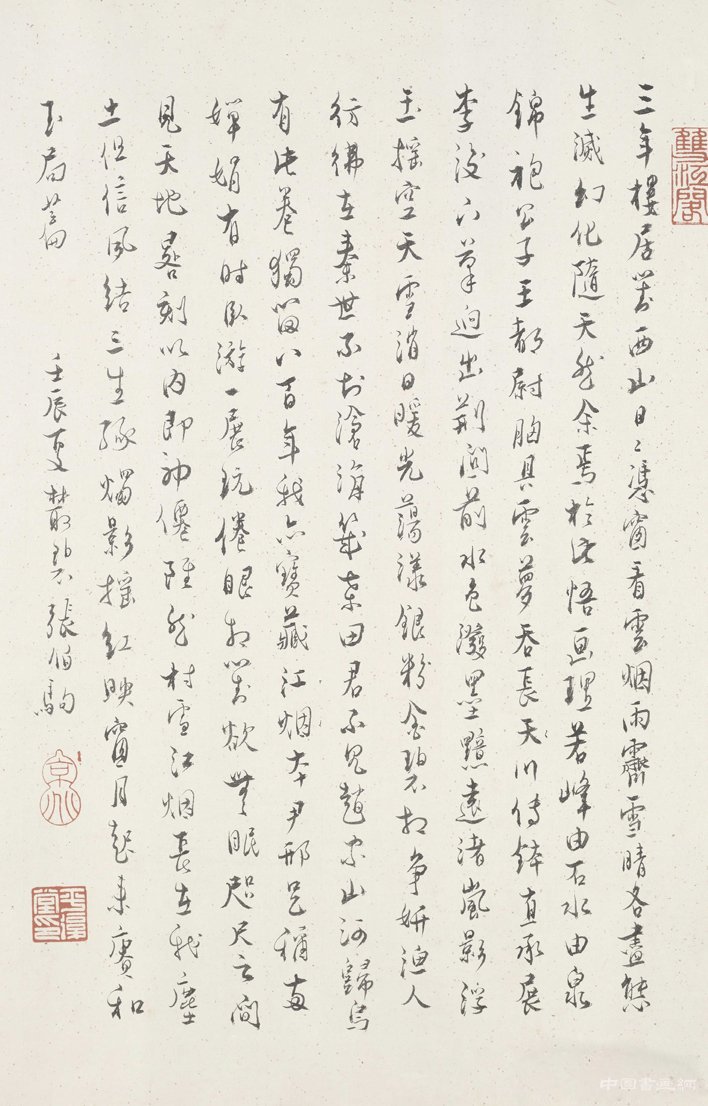 三年樓居對西山日々憑窗看雲烟雨霽雪晴各盡態
生滅幻化隨天然余焉於此悟畫理若峰由石水由泉
錦袍公子王都尉胸具雲夢吞長天川傳鉢直承展
李後下筆迥出荊關前水色潑墨黯遠渚嵐影浮
玉搖空天雪消日暖光蕩漾銀粉金碧相爭妍漁人
彷彿在秦世不知滄海幾桑田君不見趙家山河歸烏
有此卷獨留八百年我亦寶藏江烟本尹邢足稱兩
嬋娟有時臥游一展玩倦眼相對欲無眠咫尺之間
見天地晷刻以內即神僊雖然村雪江烟長在我塵
土但信風結三生緣燭影搖紅映窗月起來賡和
玉局篇
壬辰夏叢碧張伯駒
雙江閣
京兆
平復堂印
中国書画網